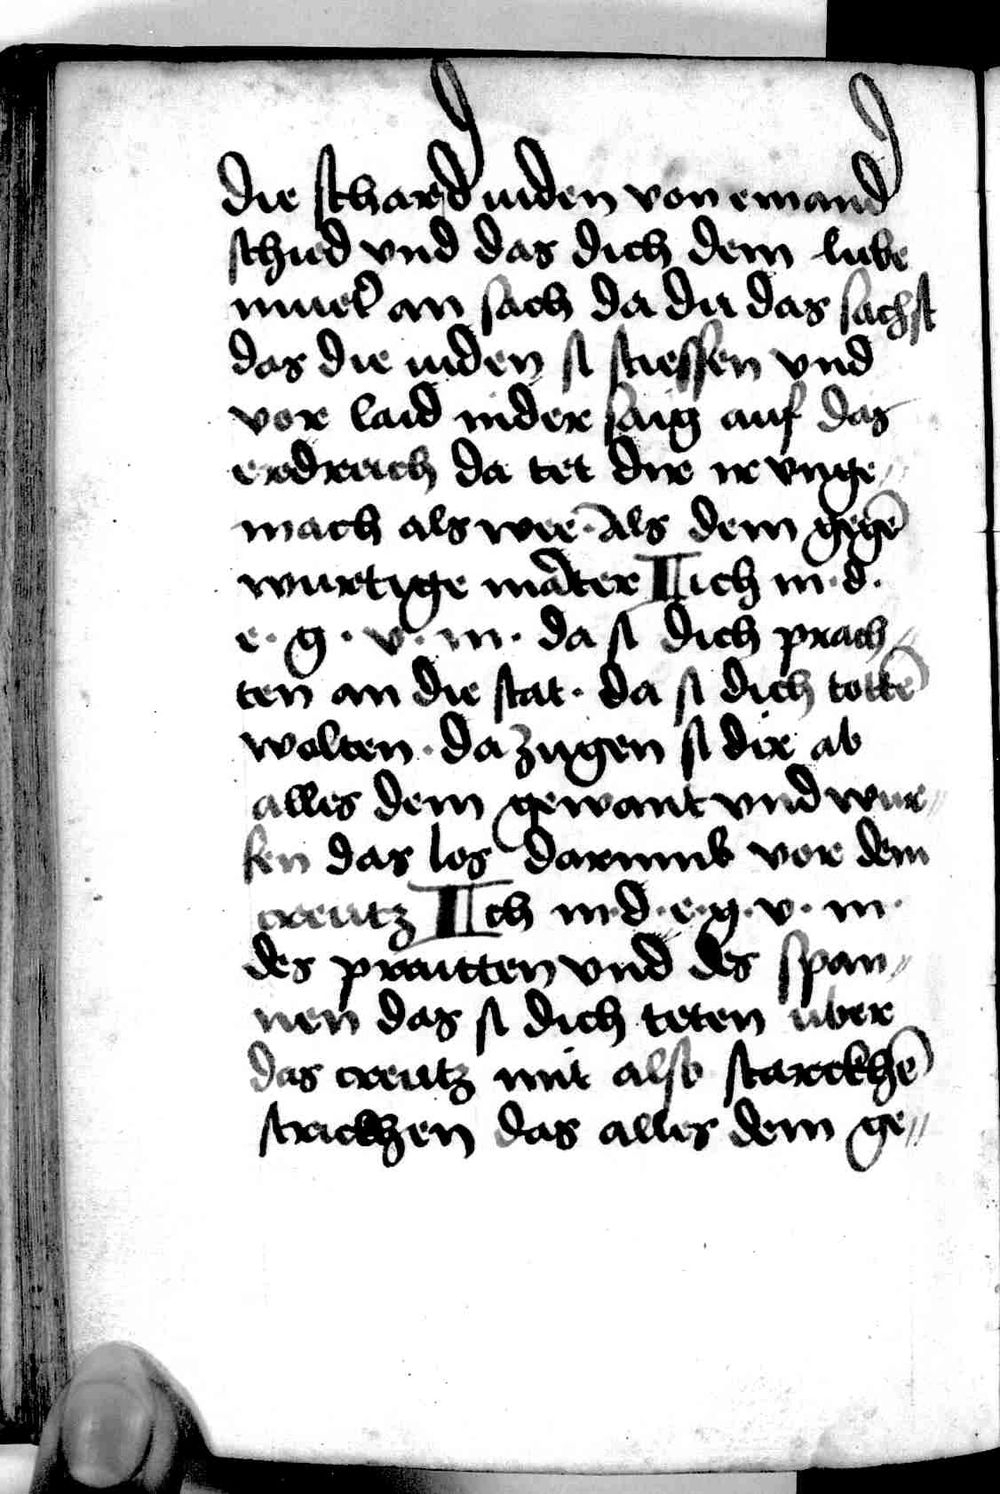 die schar d' iuden von einand'
schied vnd das dich dein liebe
mueť an sach da du das sachst
das die iuden si stiessen vnd
vor laid nider saig auf das
erdreich da tet dir ir vnge//
mach als wee · Als dein gegē
wurtige mäter Ich m · d ·
e · g · v · m · da si dich prach//
ten an die stat · da si dich tottē
wolten · da zugen si dir ab
alles dein gewant vnd wur//
fen das los darumb vor dem
creutz Ich m · d · e · g · v · m ·
des praitten vnd des span//
nen das si dich teten uber
das creutz mit also starckhē
strickhen das alles dein ge//